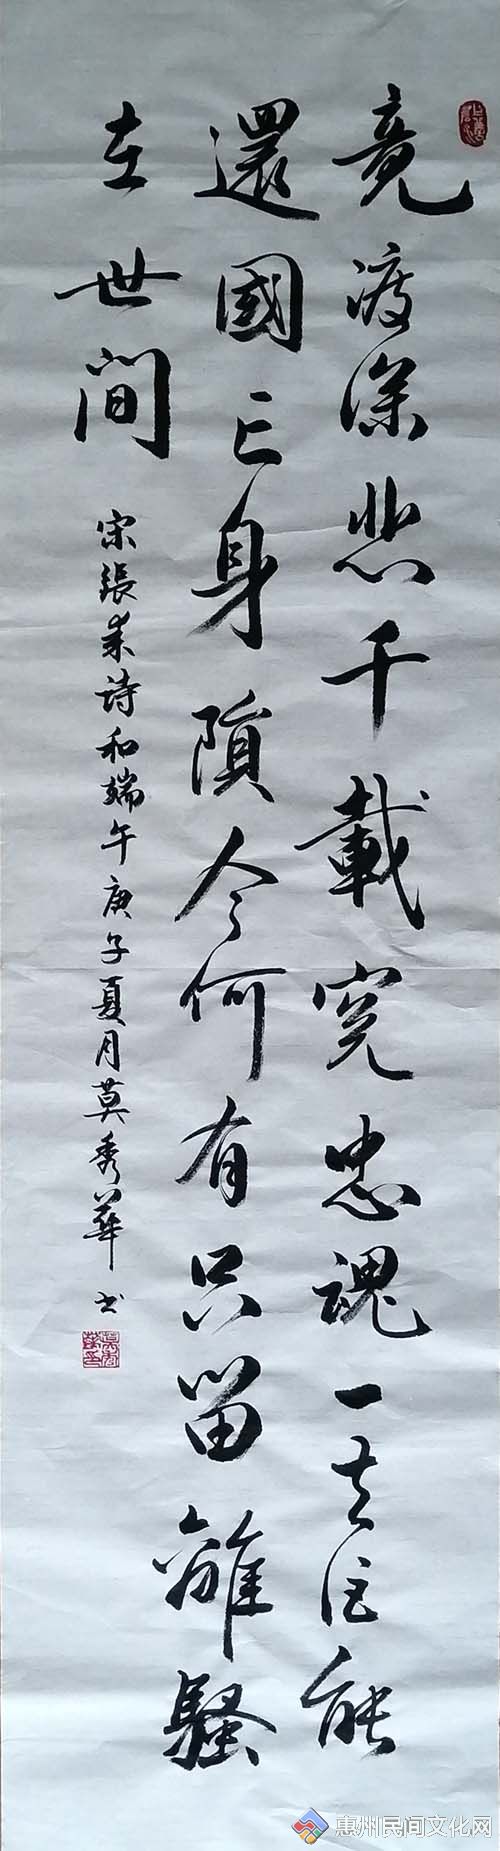 竟渡深悲千載冤忠魂一去詎能
還國亡身隕今何有只留離騷
在世間
宋張耒詩和端午庚子夏月莫秀華书
惠州民间文化网